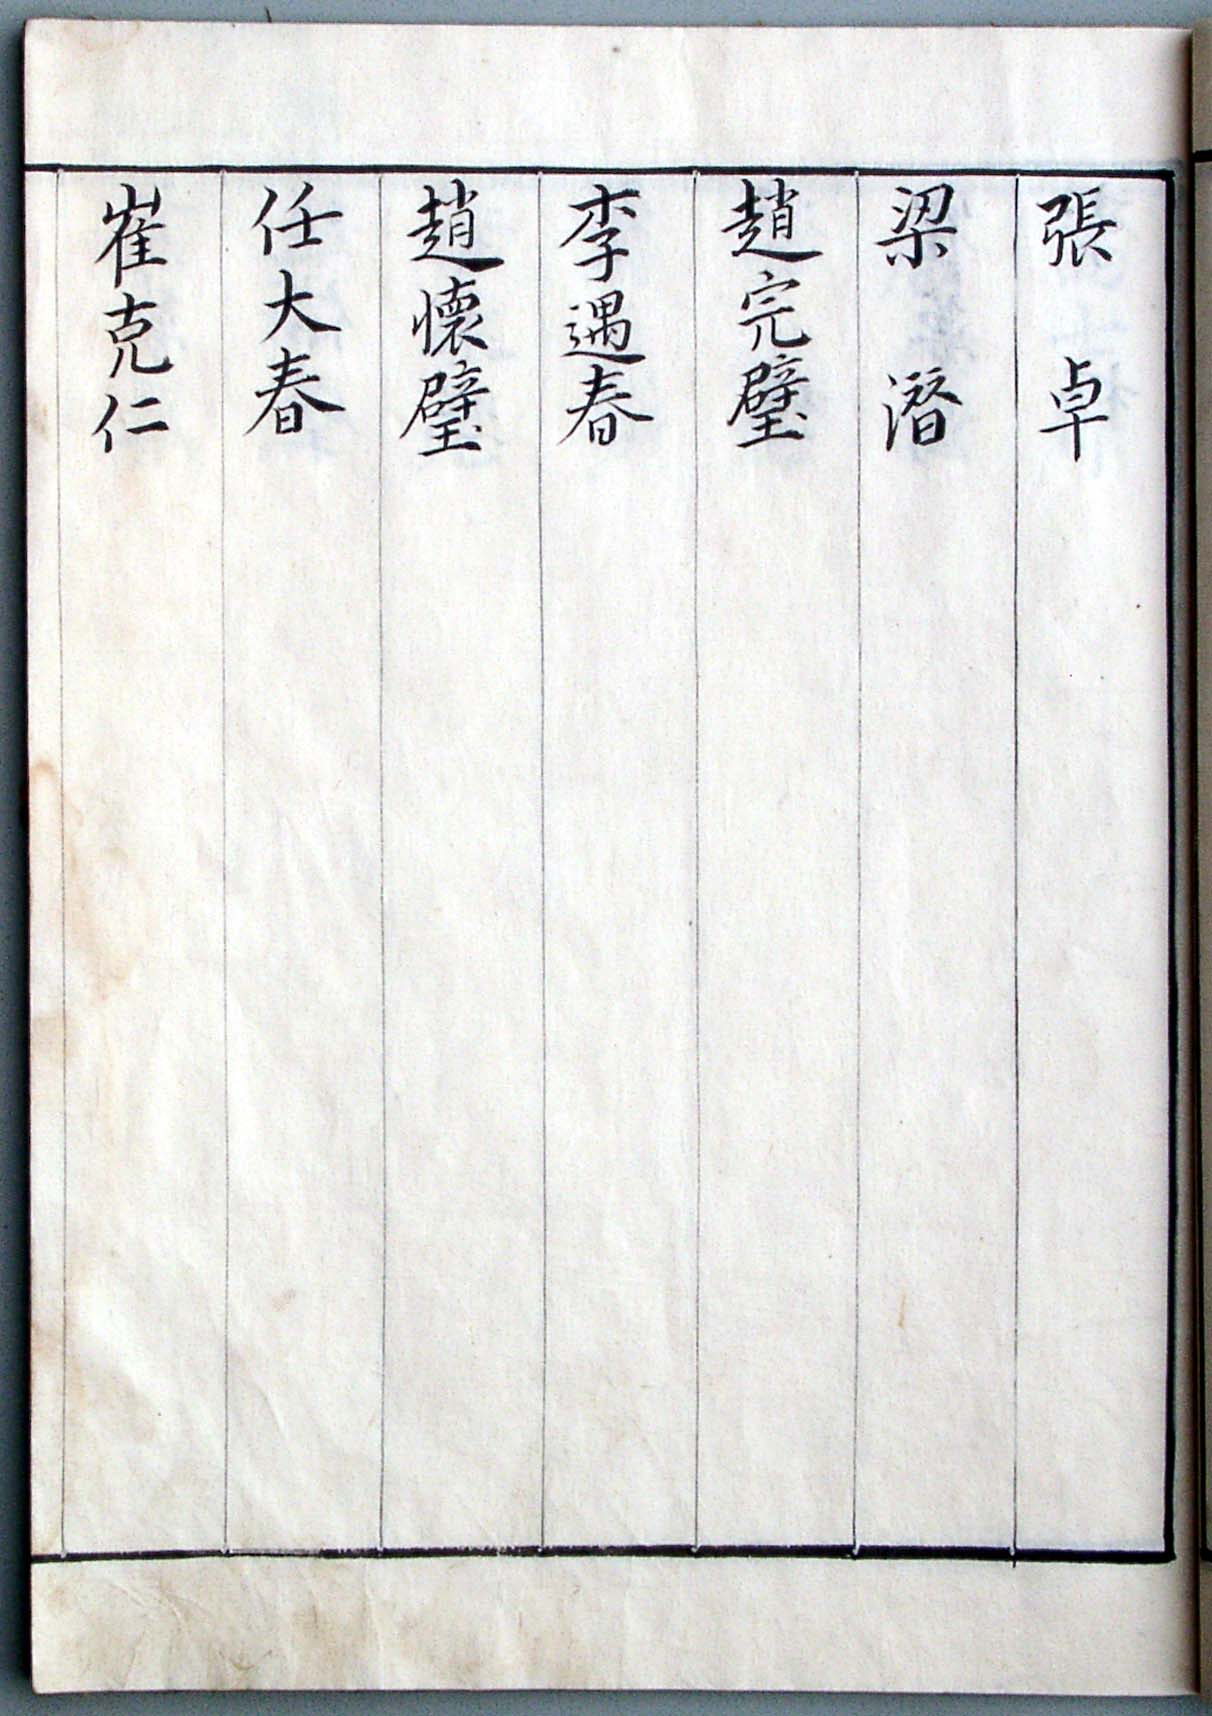 張卓
梁潛
趙完璧
李遇春
趙懷璧
任大春
崔克仁